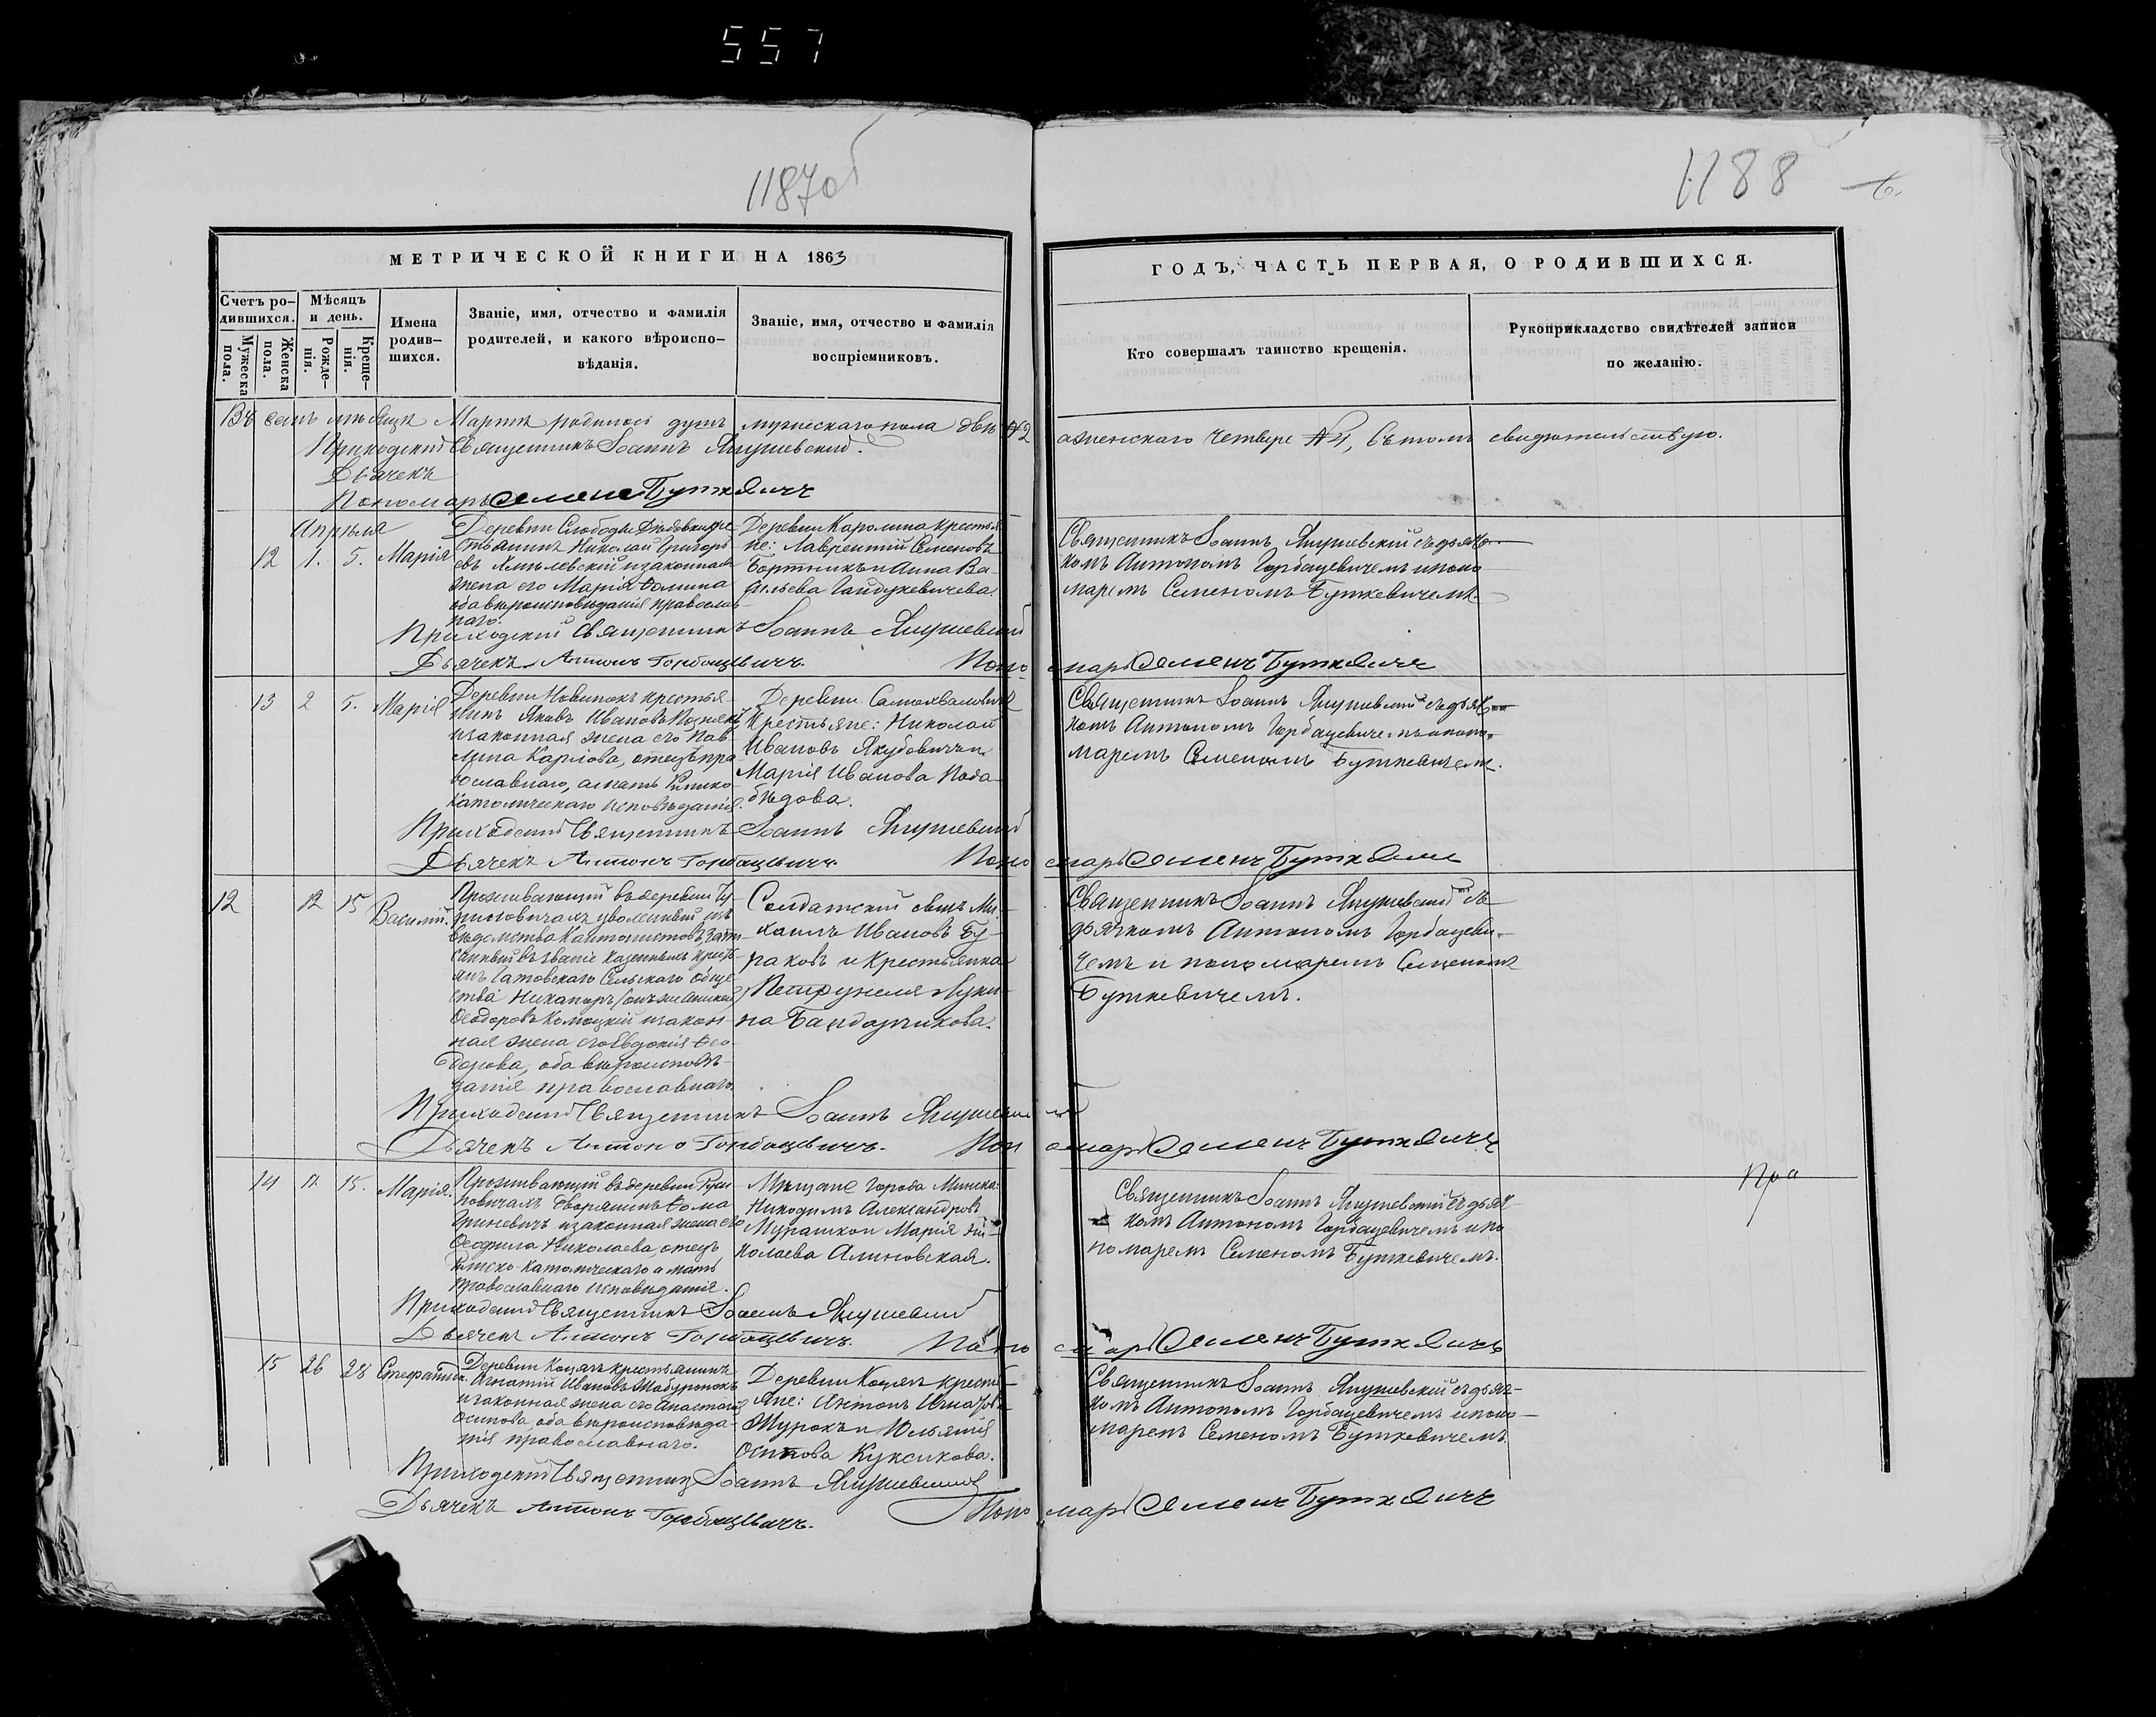 557
1187об
1188
МЕТРИЧЕСКОЙ КНИГИ НА 1863
ГОДЪ, ЧАСТЬ ПЕРВАЯ, О РОДИВШИХСЯ.
Счетъ ро-
дившихся.
Мужеска
пола.
Женска
пола.
Мѣсяцъ
и день.
Рожде-
нія.
Креще-
нія.
Имена
родив-
шихся.
Званіе, имя, отчество и фамилія
родителей, и какого вѣроиспо-
вѣданія.
Званіе, имя, отчество и фамилія
воспріемниковъ.
Кто совершалъ таинство крещенія.
Рукоприкладство свидѣтелей записи
по желанію.
Въ семъ мѣсяцѣ Мартѣ родилось душъ мужескаго пола двѣ №2
а женскаго четыре №4, въ томъ свидѣтельствую.
Приходскій Священникъ Іоаннъ
Дьячекъ
Пономарь Семенъ Буткевичъ
Апрѣля
12 1. 5. Марія
Деревни Слободы кре-
стьянинъ Николай Григорь-
евъ и законная
жена его Марія Фомина
оба вѣроисповѣданія православ-
наго.
Деревни Каролина крестья-
не: Лаврентій Семеновъ
Бортникъ и Анна Ва-
сильева Гайдукевичева
Священникъ Іоаннъ съ дьяч-
комъ Антономъ Горбацевичемъ и поно-
маремъ Семеномъ Буткевичемъ.
Приходскій Священникъ Іоаннъ
Дьячекъ Антонъ Горбацевичъ.
Пономарь Семенъ Буткевичъ
13 2 5. Марія
Деревни Новинокъ крестья-
нинъ Яковъ Ивановъ
и законная жена его Пав-
лина Карлова, отецъ пра-
вославнаго, а мать Римско-
католическаго исповѣданія.
Деревни Самохваловичъ
Крестьяне: Николай
Ивановъ Якубовичъ и
Марія Иванова Пода-
бѣдова.
Священникъ Іоаннъ съ дьяч-
комъ Антономъ Горбацевичемъ и поно-
маремъ Семеномъ Буткевичемъ.
Приходскій Священникъ Іоаннъ
Дьячекъ Антонъ Горбацевичъ.
Пономарь Семенъ Буткевичъ
12 12 15 Василій.
Проживающій въ деревни Гу-
риновичахъ уволенный изъ
вѣдомства Кантонистовъ
въ званіе казенныхъ кресть-
янъ Гатовскаго Сельскаго обще-
ства Никаноръ
Ѳеодоровъ и закон-
ная жена его Евдокія Ѳео-
дорова, оба вѣроисповѣ-
данія православнаго.
Солдатскій сынъ Ми-
хаилъ Ивановъ Бу-
раковъ и крестьянка
Петрунеля Луки-
на Бандарчикова.
Священникъ Іоаннъ съ
дьячкомъ Антономъ Горбацеви-
чемъ и пономаремъ Семеномъ
Буткевичемъ.
Приходскій Священникъ Іоаннъ
Дьячекъ Антонъ Горбацевичъ.
Пономарь Семенъ Буткевичъ
14 15. Марія.
Проживающій въ деревни Гури-
новичахъ Дворянинъ Ѳома
Гриневичъ и законная жена его
Ѳеофила Николаева, отецъ
Римско-католическаго а мать
православнаго исповѣданія.
Мѣщане города Минска:
Никодимъ Александровъ
Мурашко и Марія Ни-
колаева Алиновская.
Священникъ Іоаннъ съ дьяч-
комъ Антономъ Горбацевичемъ и по-
номаремъ Семеномъ Буткевичемъ.
Приходскій Священникъ Іоаннъ
Дьячекъ Антонъ Горбацевичъ.
Пономарь Семенъ Буткевичъ
15 26 28 Стефанида.
Деревни крестьянинъ
Игнатій Ивановъ
и законная жена его Анастасія
Осипова оба вѣроисповѣда-
нія православнаго.
Деревни кресть-
яне: Антонъ Игнатовъ
и Юльянія
Осипова Куксикова.
Священникъ Іоаннъ съ дьяч-
комъ Антономъ Горбацевичемъ и поно-
маремъ Семеномъ Буткевичемъ.
Приходскій Священникъ Іоаннъ
Дьячекъ Антонъ Горбацевичъ.
Пономарь Семенъ Буткевичъ